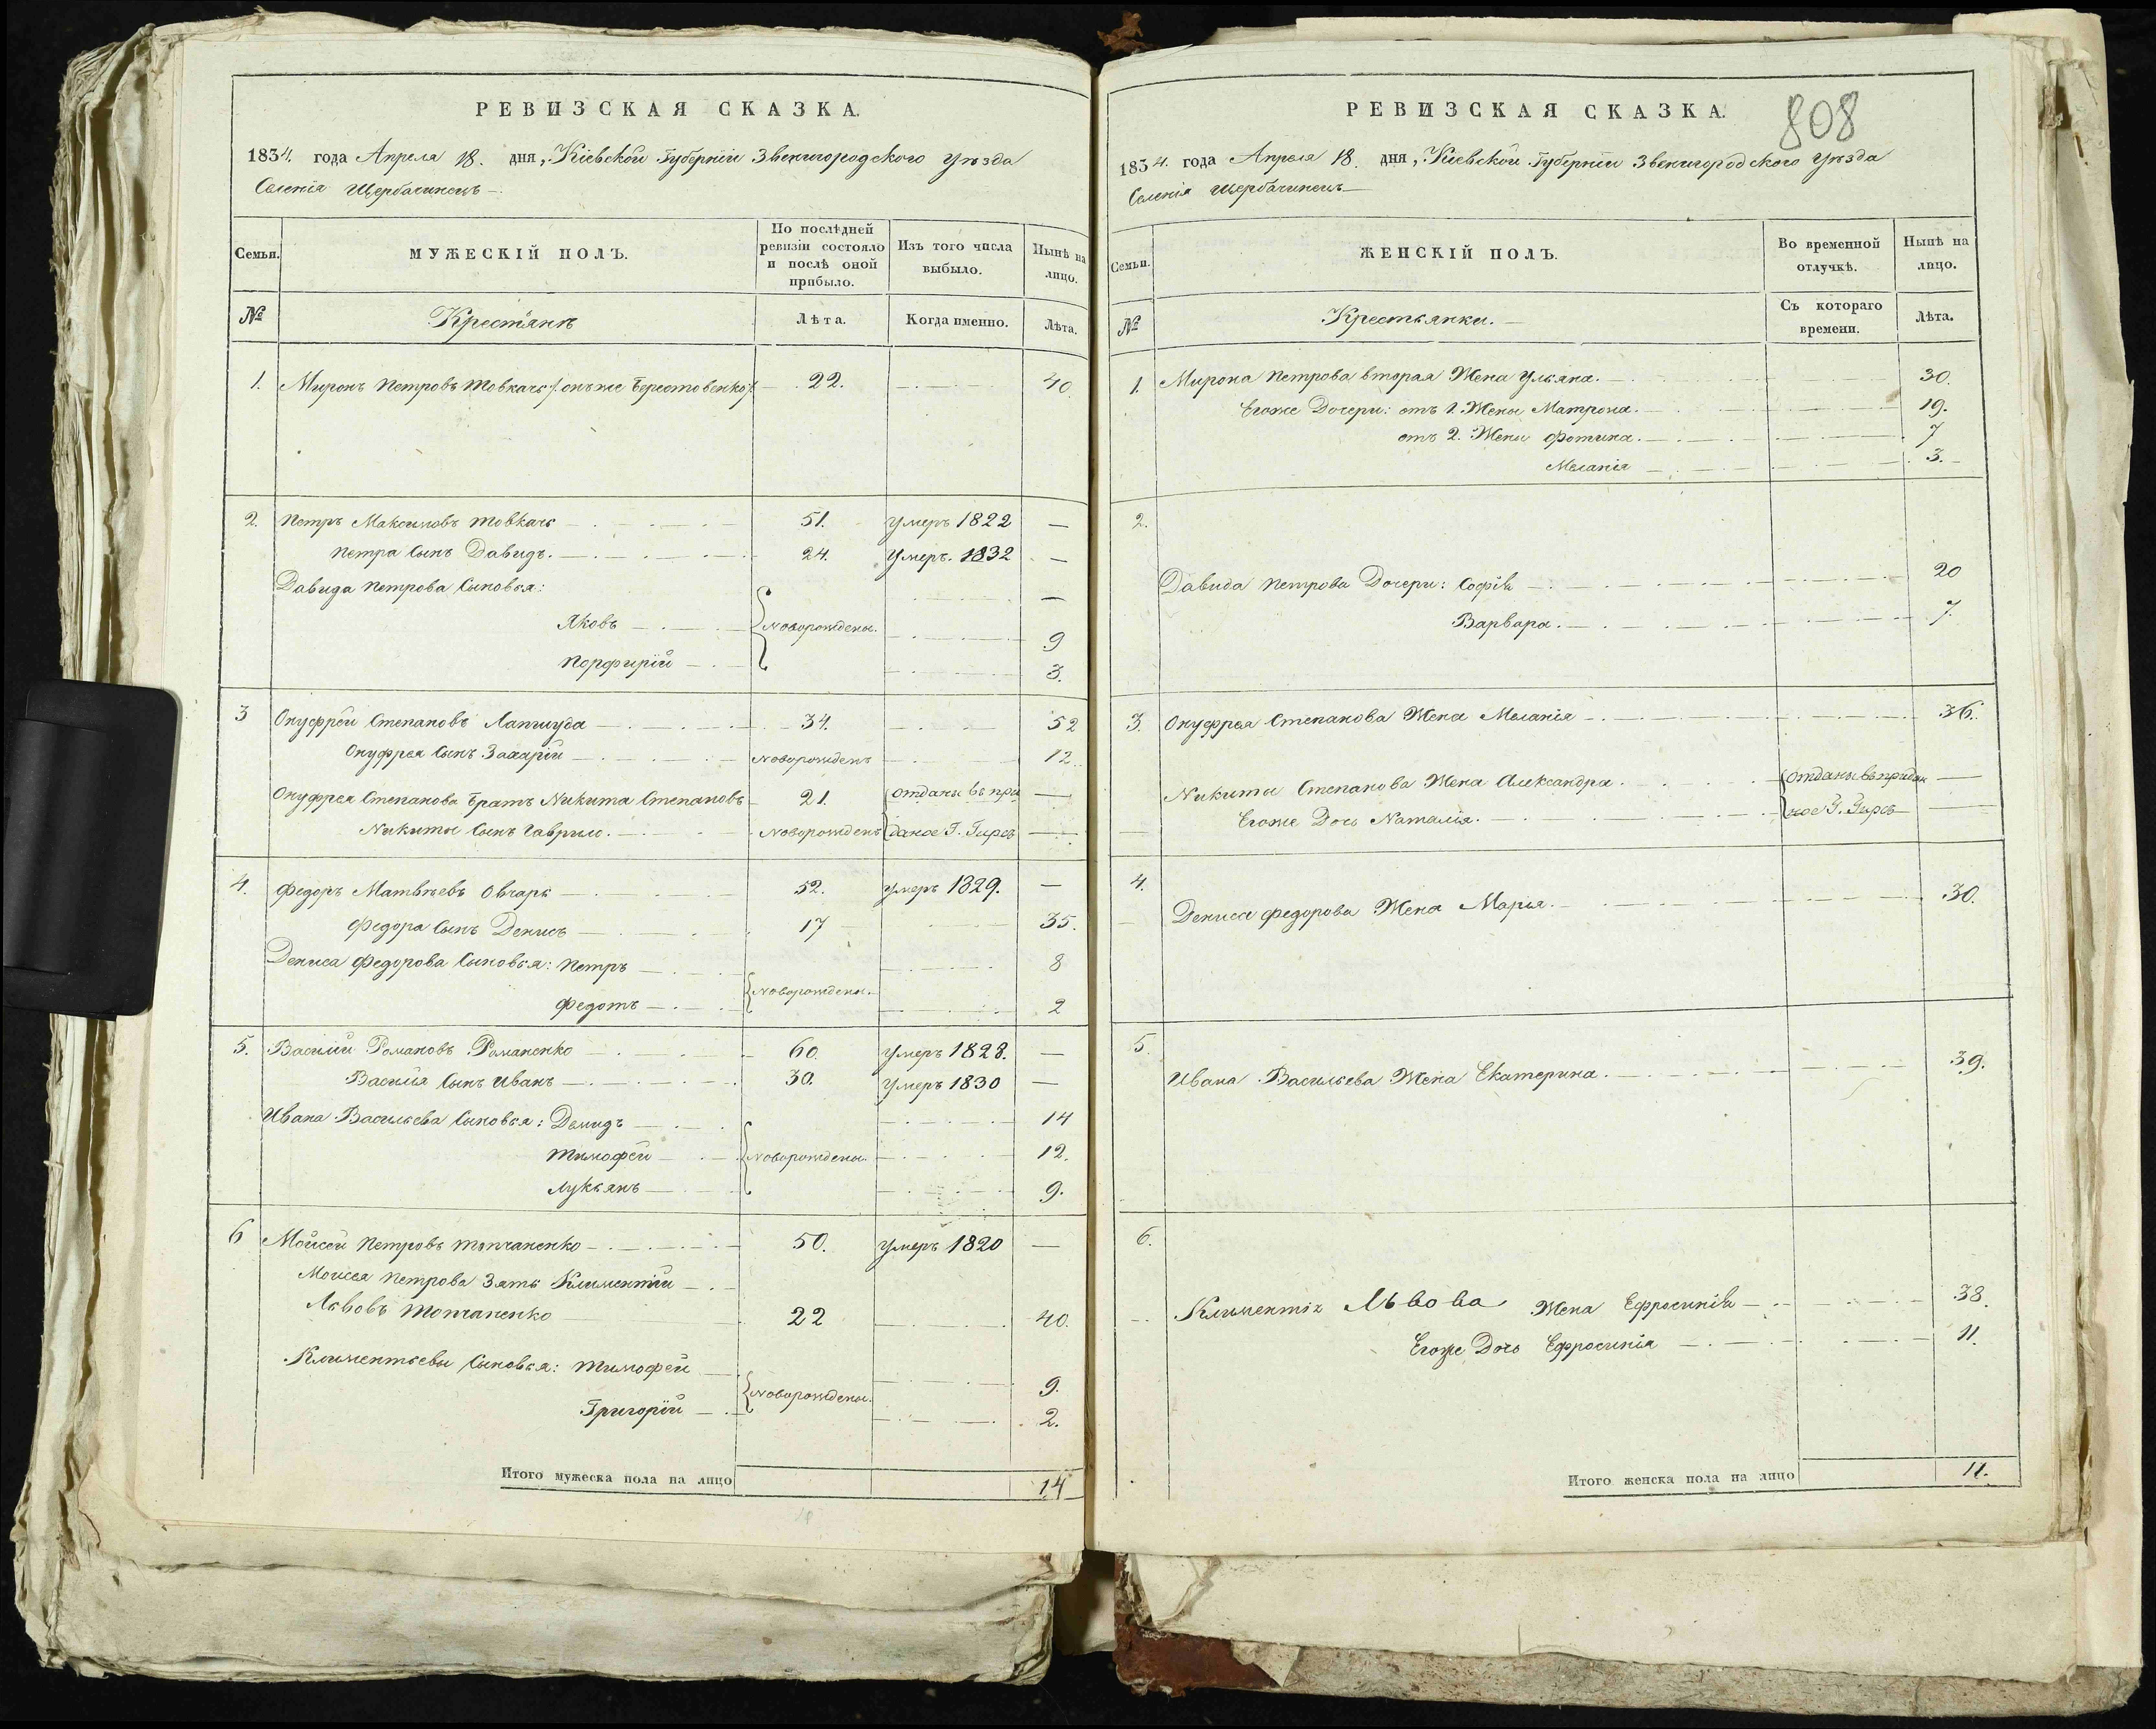 РЕВИЗСКАЯ СКАЗКА.
1834. года Апреля 18. дня, Кіевской Губерніи Звенигородского Уѣзда
Селенія Щербачинецъ
Семьи.
МУЖЕСКІЙ ПОЛЪ.
По послѣдней ревизіи состояло и послѣ оной прибыло.
Изъ того числа выбыло.
Нынѣ на лицо.
№
Крестьянѣ
Лѣта.
Когда именно.
Лѣта.
1. Миронъ Петровъ Товкачь /: онъ же Берестовенко :/ 22. 40.
2. Петръ Максимовъ Товкачь 51. Умеръ 1822
Петра Сынъ Давидъ. 24. Умеръ. 1832
Давида Петрова Сыновья:
Яковъ Новорождены. 9
Порфирій 3.
3 Онуфрей Степановъ Лапшуда 34. 52
Онуфрея Сынъ Захарій Новорожденъ 12.
Онуфрея Степанова Братъ Никита Степановъ 21. отданы въ при
Никиты Сынъ Гаврило. Новорожденъ даное Г.
4. Федоръ Матвѣевъ Овчарь 52. Умеръ 1829.
Федора Сынъ Денисъ 17 35.
Дениса Федорова Сыновья: Петръ 8
Новорождены.
Федотъ 2
5. Василій Романовъ Романенко 60. Умеръ 1828.
Василія Сынъ Иванъ 30. Умеръ 1830
Ивана Васильева Сыновья: Демидъ 14
Тимофей Новорождены. 12.
Лукьянъ 9.
6 Мойсей Петровъ Топчаненко 50. Умеръ 1820
Моисея Петрова Зять Климентій
Львовъ Топчаненко 22 40.
Климентьевы Сыновья: Тимофей 9.
Новорождены.
Григорій 2.
Итого мужеска пола на лицо 14
РЕВИЗСКАЯ СКАЗКА.
808
1834. года Апреля 18. дня, Кіевской Губерніи Звенигородского Уѣзда
Селенія Щербачинецъ
Семьи.
ЖЕНСКІЙ ПОЛЪ.
Во временной отлучкѣ.
Нынѣ на лицо.
№
Крестьянки.
Съ котораго времени.
Лѣта.
1. Мирона Петрова вторая Жена Ульяна. 30.
Егоже Дочери: отъ 1. Жены Матрона. 19.
отъ 2. Жены Фотина. 7
Меланія 3.
2.
Давида Петрова Дочери: Софія 20
Варвара. 7.
3. Онуфрея Степанова Жена Меланія 36.
Никиты Степанова Жена Александра. отданы въ придан
Егоже Дочь Наталія. ное Г.
4.
Дениса Федорова Жена Марья. 30.
5.
Ивана Васильева Жена Екатерина. 39.
6.
Климентія Львова Жена Ефросинія 38.
Егоже Дочь Ефросинія 11.
Итого женска пола на лицо 11.